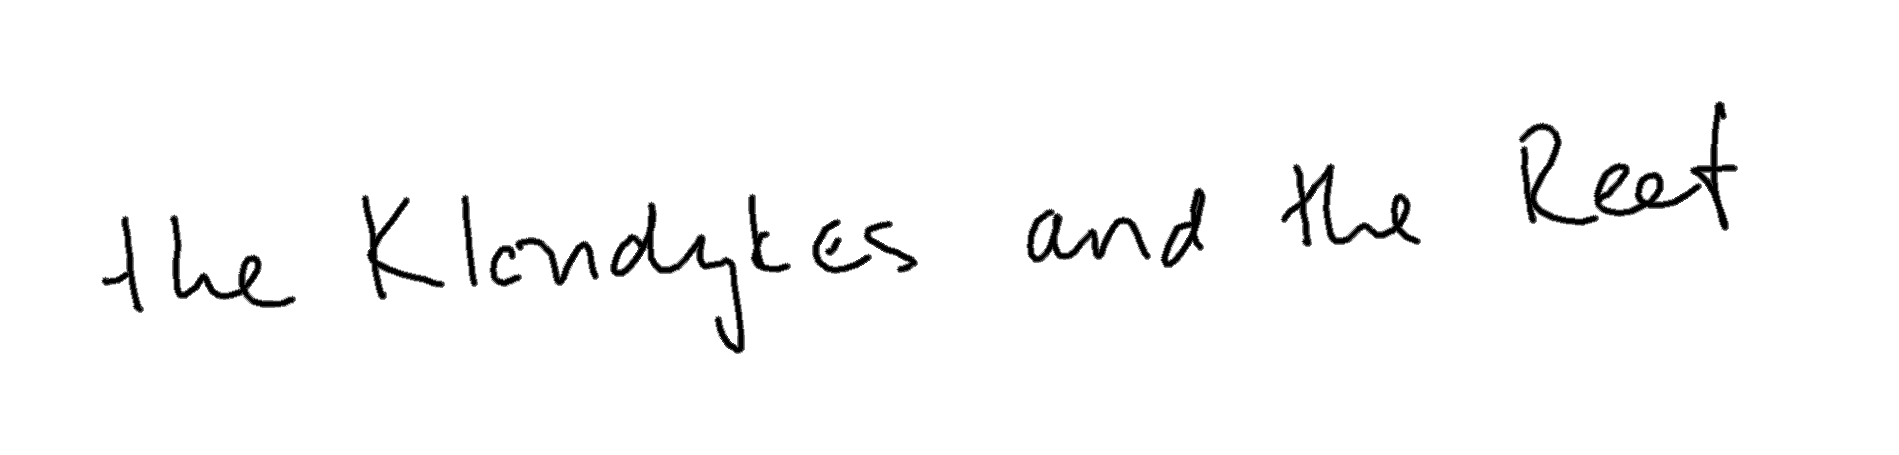 the Klondykes and the Reet